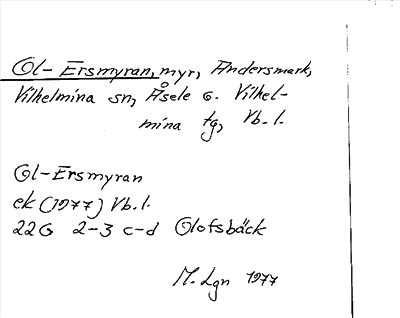 Ol-Ersmyran, myr, Andersmark,
Vilhelmina sn, Åsele o. Vilhel-
mina tg, Vb.l.
Ol-Ersmyran
ek (1977) Vb.l.
22G 2-3 c-d Olofsbäck
M. Lgn 1977